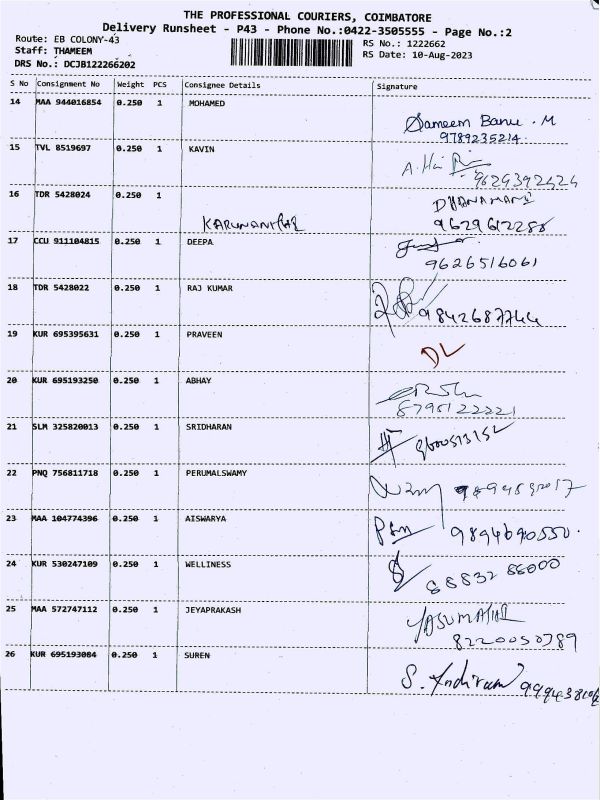 THE PROFESSIONAL COURIERS, COIMBATORE
Delivery Runsheet - P43 - Phone No.:0422-3505555 - Page No.:2
Route: EB COLONY-43
RS No.: 1222662
Staff: THAMEEM
RS Date: 10-Aug-2023
DRS No.: DCJB122266202
S No Consignment No Weight PCS Consignee Details Signature
14 MAA 944016854 0.250 1 MOHAMED
Sameem Banu . M
9789235214
15 TVL 8519697 0.250 1 KAVIN
9629392424
16 TDR 5428024 0.250 1
DHANAMANI
9629612288
17 CCU 911104815 0.250 1 DEEPA
9626516061
18 TDR 5428022 0.250 1 RAJ KUMAR
9842687744
19 KUR 695395631 0.250 1 PRAVEEN
DL
20 KUR 695193250 0.250 1 ABHAY
21 SLM 325820013 0.250 1 SRIDHARAN
22 PNQ 756811718 0.250 1 PERUMALSWAMY
23 MAA 104774396 0.250 1 AISWARYA
9894690550.
24 KUR 530247109 0.250 1 WELLINESS
88832 86000
25 MAA 572747112 0.250 1 JEYAPRAKASH
8220050789
26 KUR 695193084 0.250 1 SUREN